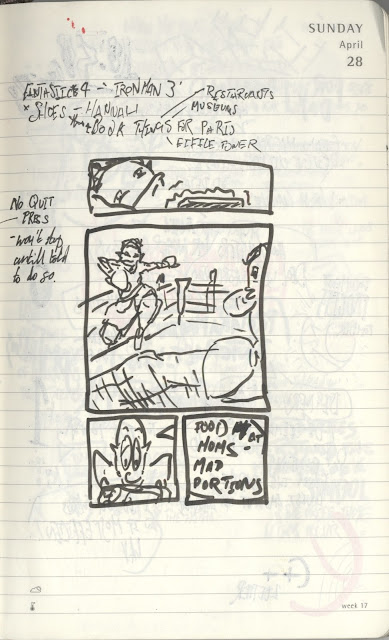 SUNDAY
April
28
FANTASTIC 4 - 'IRON MAN 3'
RESTAURANTS
MUSEUMS
* SHOES - HANNAH
BOOK THINGS FOR PARIS
EIFFLE TOWER
NO QUIT
PRESS
- won't stop
untill told
to do so.
FOOD AT
MOMS -
MAD
PORTIONS
week 17